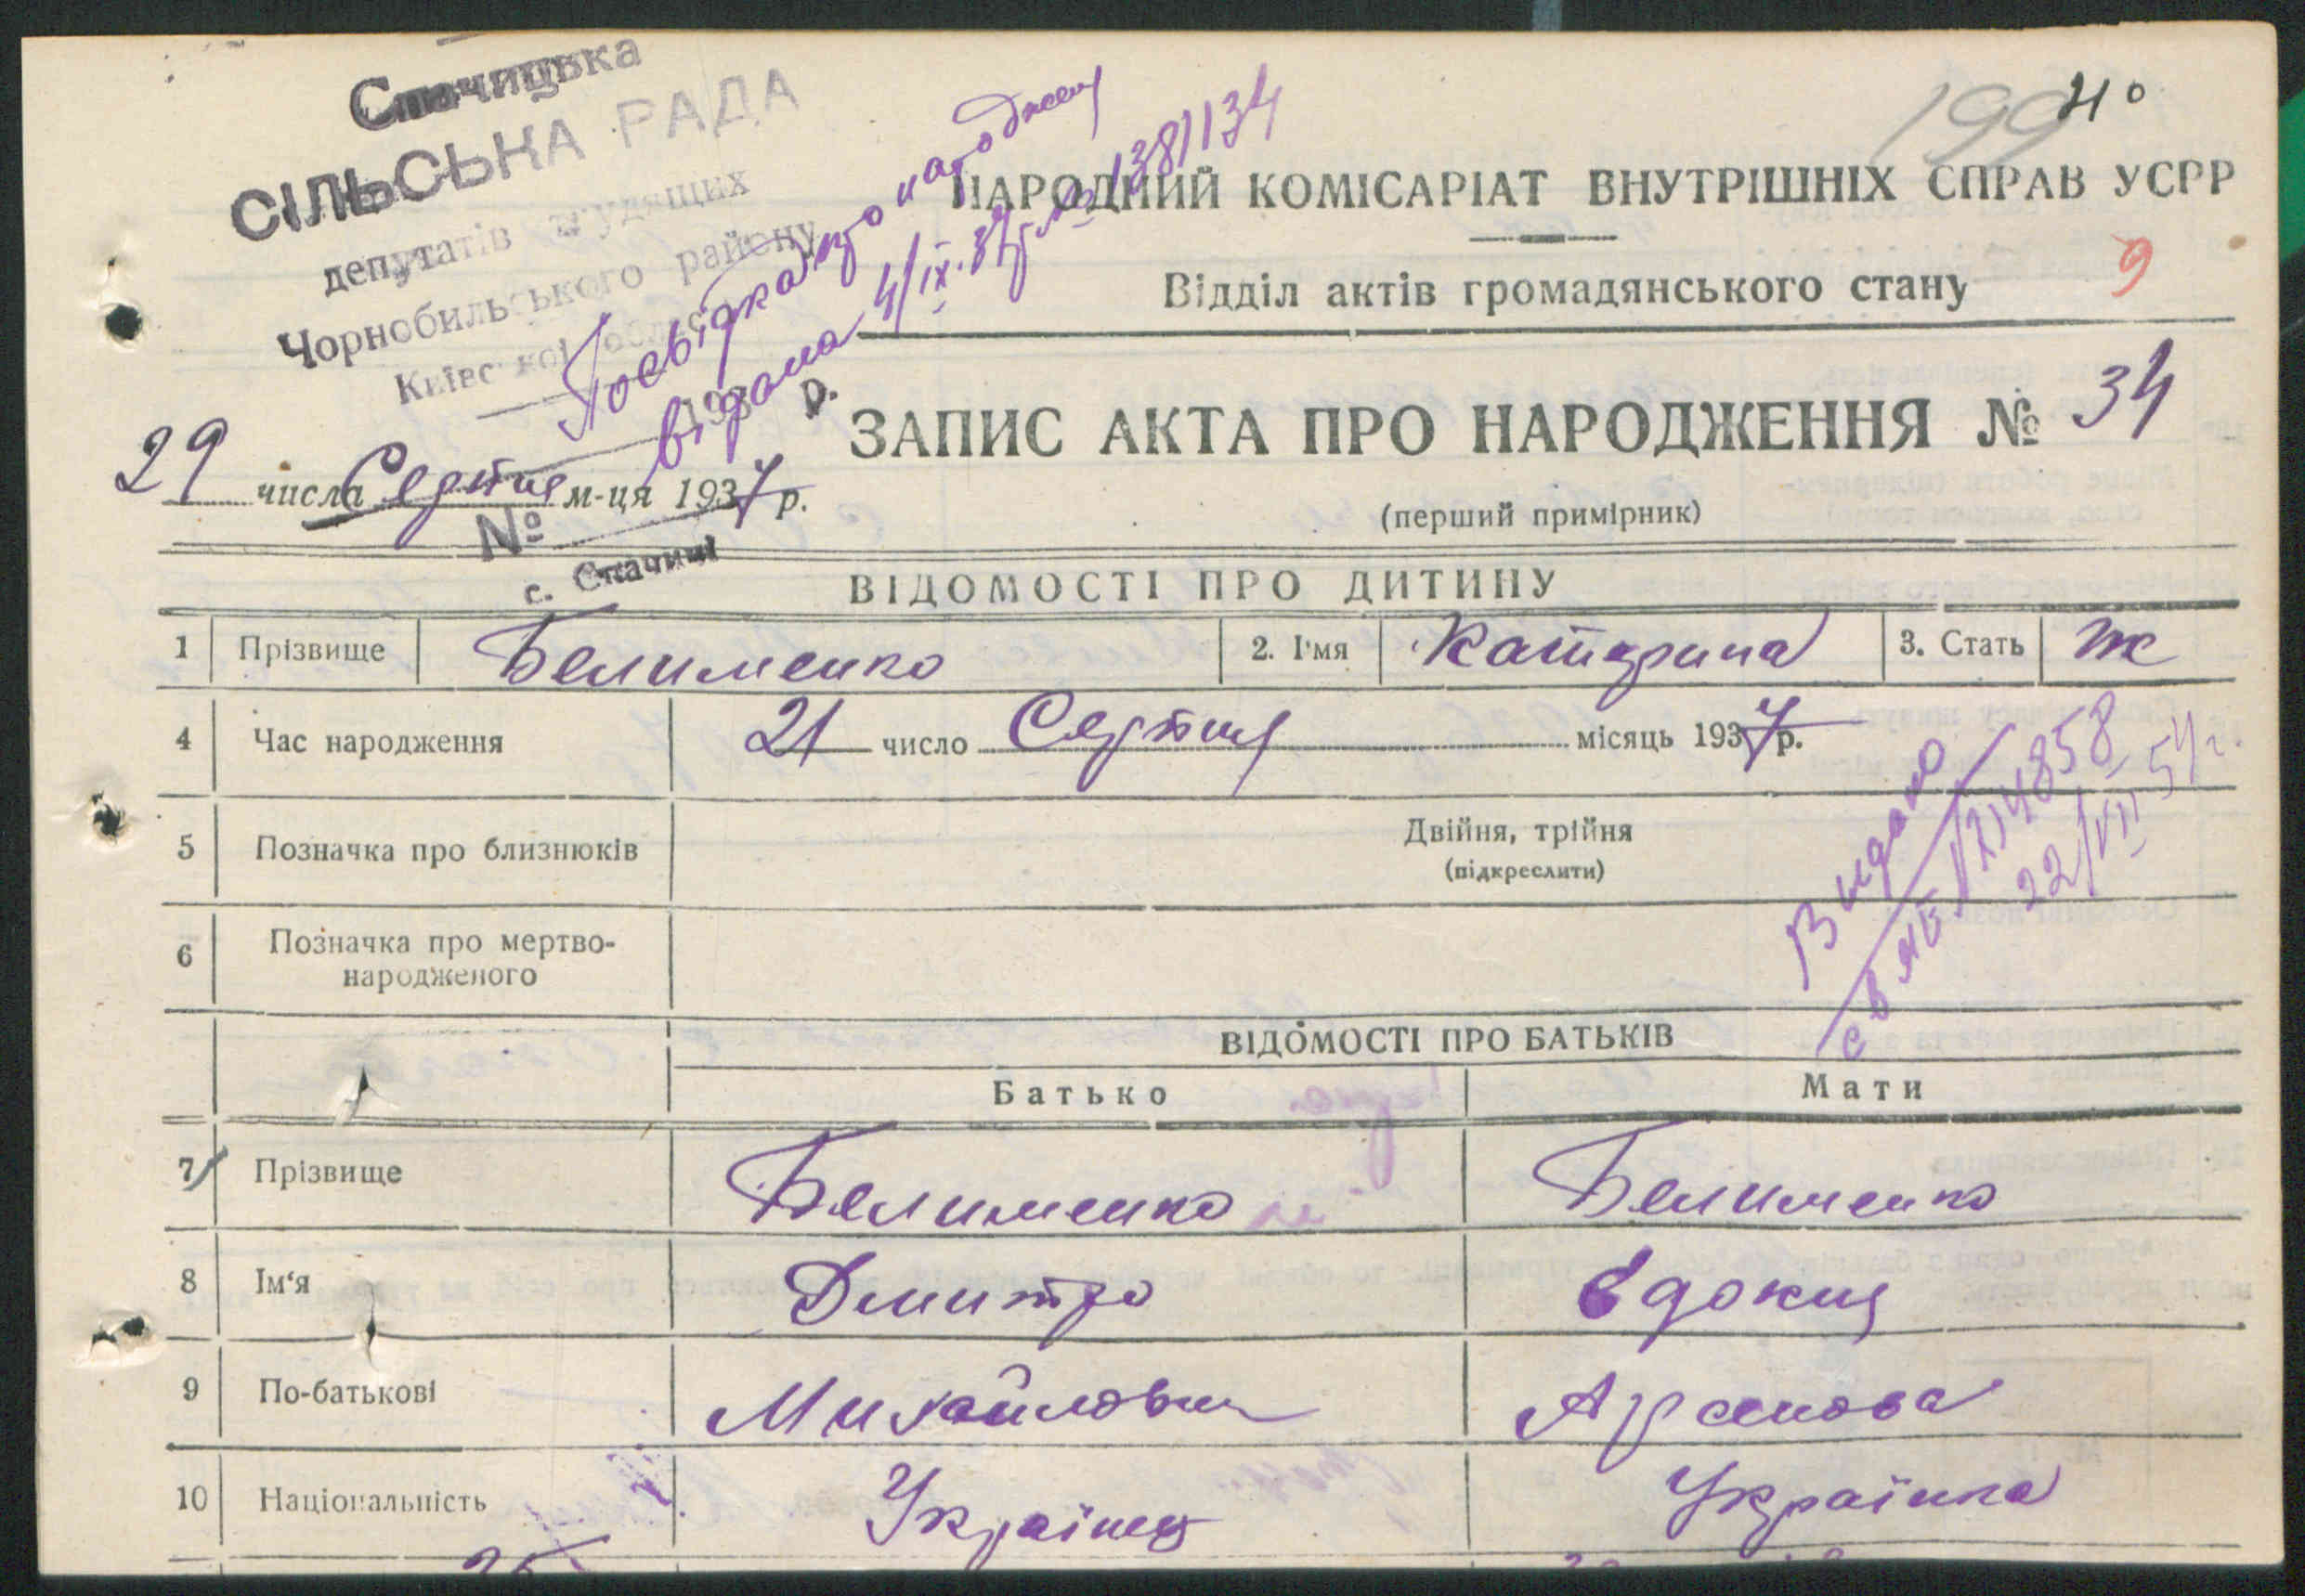 Спачицька
СІЛЬСЬКА РАДА
депутатів трудящих
Чорнобильського району
Київської області
193 р.
Посвідка про народженя
відана 4/IX.37р № 1381134
199
9
НАРОДНИЙ КОМІСАРІАТ ВНУТРІШНІХ СПРАВ УСРР
Відділ актів громадянського стану
ЗАПИС АКТА ПРО НАРОДЖЕННЯ № 34
(перший примірник)
29 числа Серпня м-ця 1937 р.
№
с. Спачичі
ВІДОМОСТІ ПРО ДИТИНУ
1 Прізвище Белименко 2. І'мя Катерина 3. Стать ж
4 Час народження 21 число Серпня місяць 1937 р.
5 Позначка про близнюків Двійня, трійня
(підкреслити)
6 Позначка про мертво-
народженого
Видано
св ЯБ 1714858
22/VII 54 г.
ВІДОМОСТІ ПРО БАТЬКІВ
Батько Мати
7 Прізвище Белименко Белименко
8 Ім‘я Дмитро Євдокия
9 По-батькові Михайлович Арсенова
10 Національність Українец Українка